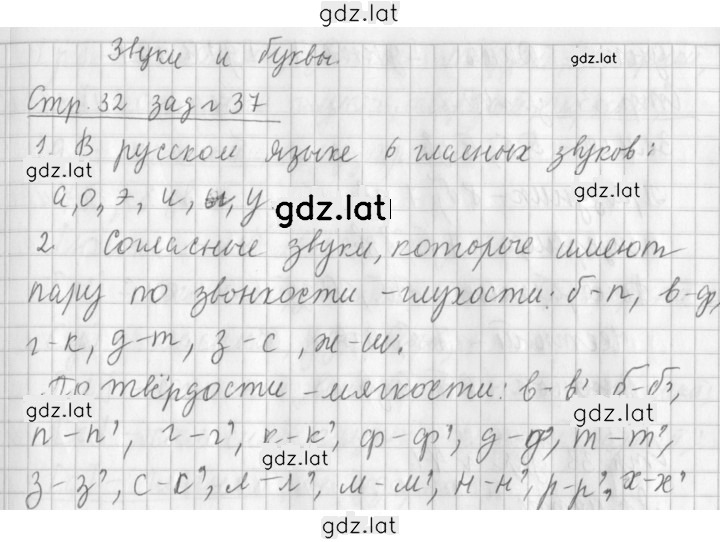 gdz.lat
Звуки и буквы
gdz.lat
Стр. 32 зад г 37
1. В русском языке 6 гласных звуков:
gdz.lat
gdz.lat
а, о, э, и, ы, у.
gdz.lat
2. Согласные звуки, которые имеют
пару по звонкости - глухости: б-п, в-ф,
г-к, д-т, з-с, ж-ш.
По твёрдости - мягкости: в-в' б-б',
gdz.lat
gdz.lat
п-п', г-г', к-к', ф-ф', д-д', т-т',
gdz.lat
з-з', с-с', л-л', м-м', н-н', р-р', х-х'
gdz.lat